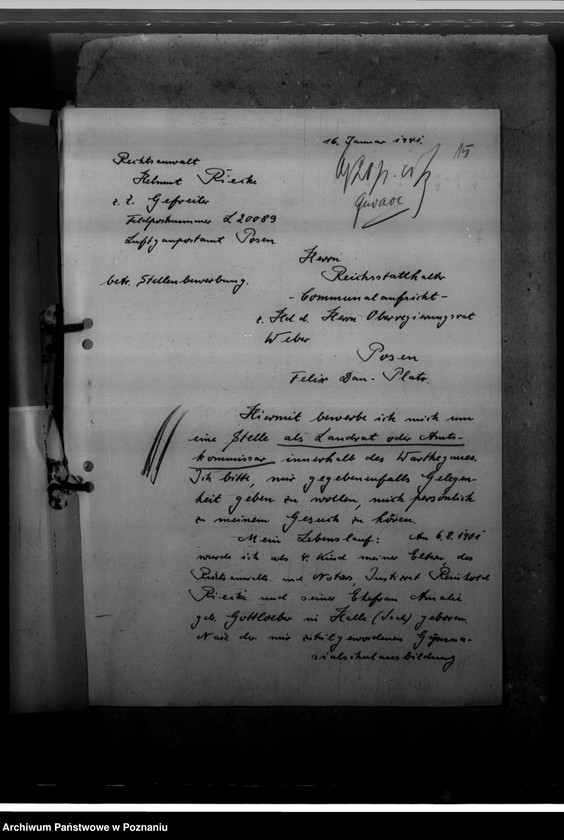 16. Januar 1941.
15
Rechtsanwalt
Helmut Riecke
z. Z. Gefreiter
Feldpostnummer L 20089
Luftgaupostamt Posen
betr. Stellenbewerbung.
Herrn
Reichsstatthalter
- Communalaufsicht -
z. Hd. d. Herrn Oberregierungsrat
Weber
Posen
Felix Dan - Platz.
Hiermit bewerbe ich mich um
eine Stelle als Landrat oder Amts-
kommissar innerhalb des Warthegaues.
Ich bitte, mir gegebenenfalls Gelegen-
heit geben zu wollen, mich persönlich
zu meinem Gesuch zu hören.
Mein Lebenslauf: Am 6.8.1901
wurde ich als 4. Kind meiner Eltern, des
Rechtsanwalts und Notars, Justizrat Reinhold
Riecke und seiner Ehefrau Amalie
geb. Gottloeber in Halle (Saale) geboren.
Nach der mir zuteilgewordenen Gymna-
sialschulausbildung
Archiwum Państwowe w Poznaniu